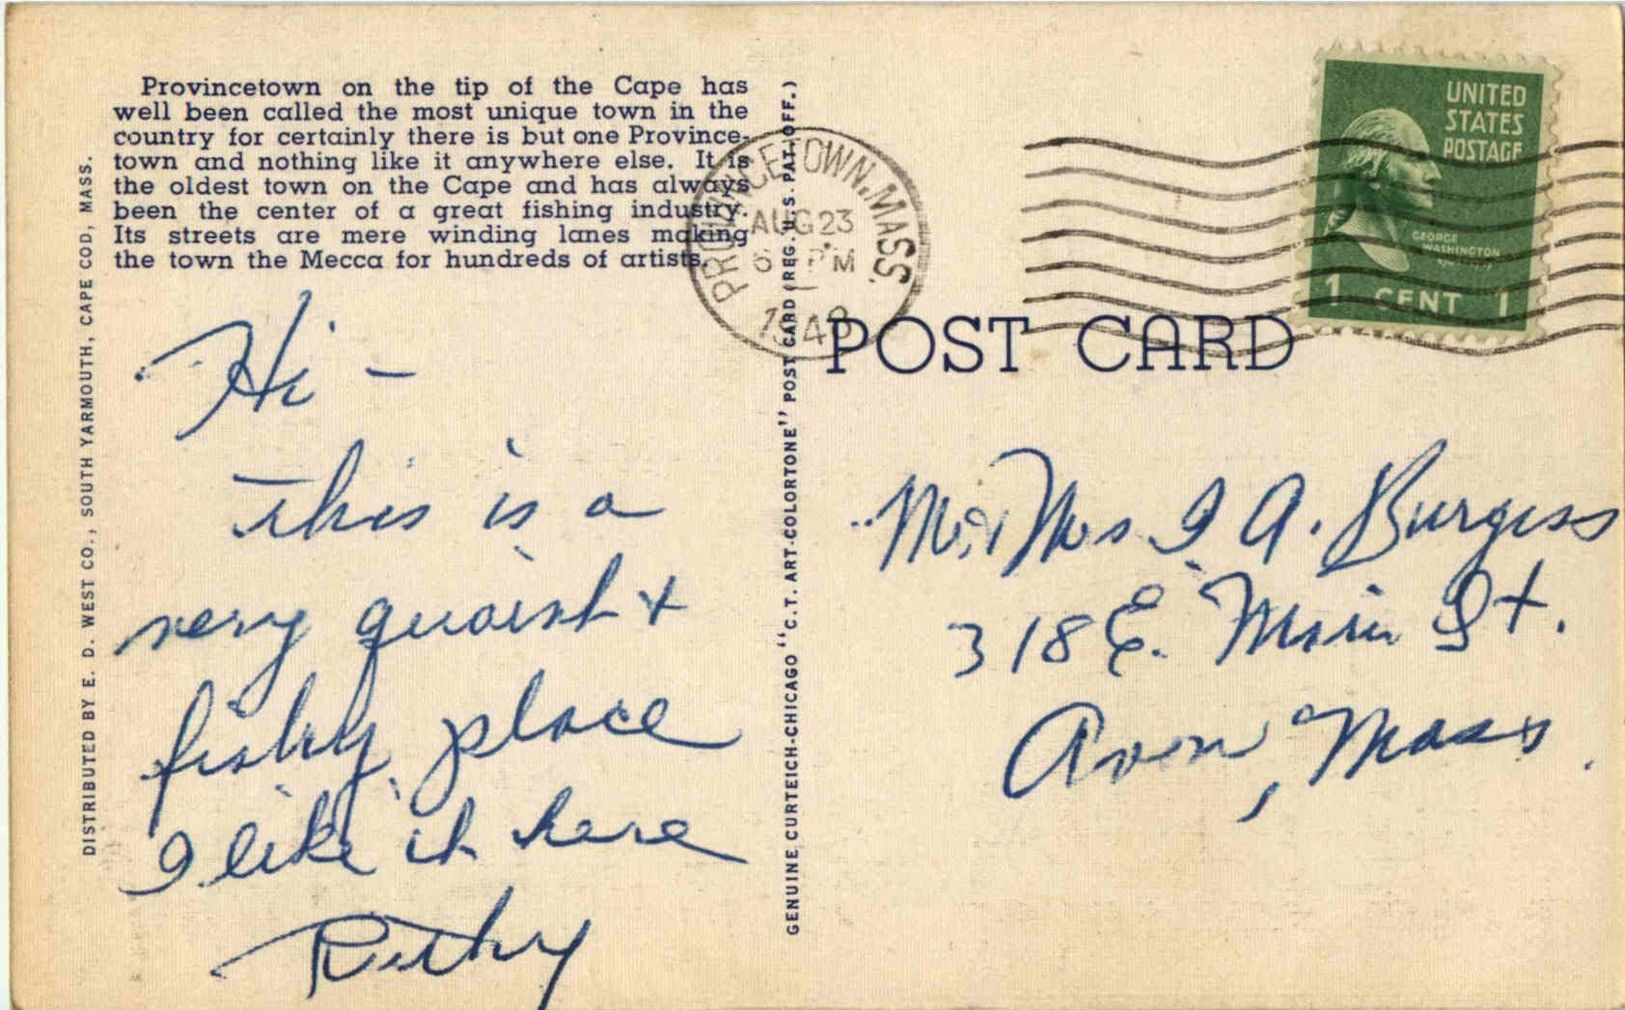 Provincetown on the tip of the Cape has
well been called the most unique town in the
country for certainly there is but one Province-
town and nothing like it anywhere else. It is
the oldest town on the Cape and has always
been the center of a great fishing industry.
Its streets are mere winding lanes making
the town the Mecca for hundreds of artists.
DISTRIBUTED BY E. D. WEST CO., SOUTH YARMOUTH, CAPE COD, MASS.
Hi -
This is a
very quaint +
fishy place
I like it here
Ruthy
GENUINE CURTEICH-CHICAGO "C.T. ART-COLORTONE" POST CARD (REG. U.S. PAT. OFF.)
PROVINCETOWN, MASS.
AUG 23
PM
1948
UNITED
STATES
POSTAGE
GEORGE
WASHINGTON
1 CENT 1
POST CARD
Mr & Mrs I A. Burgess
318 E. Main St.
Avon, Mass.